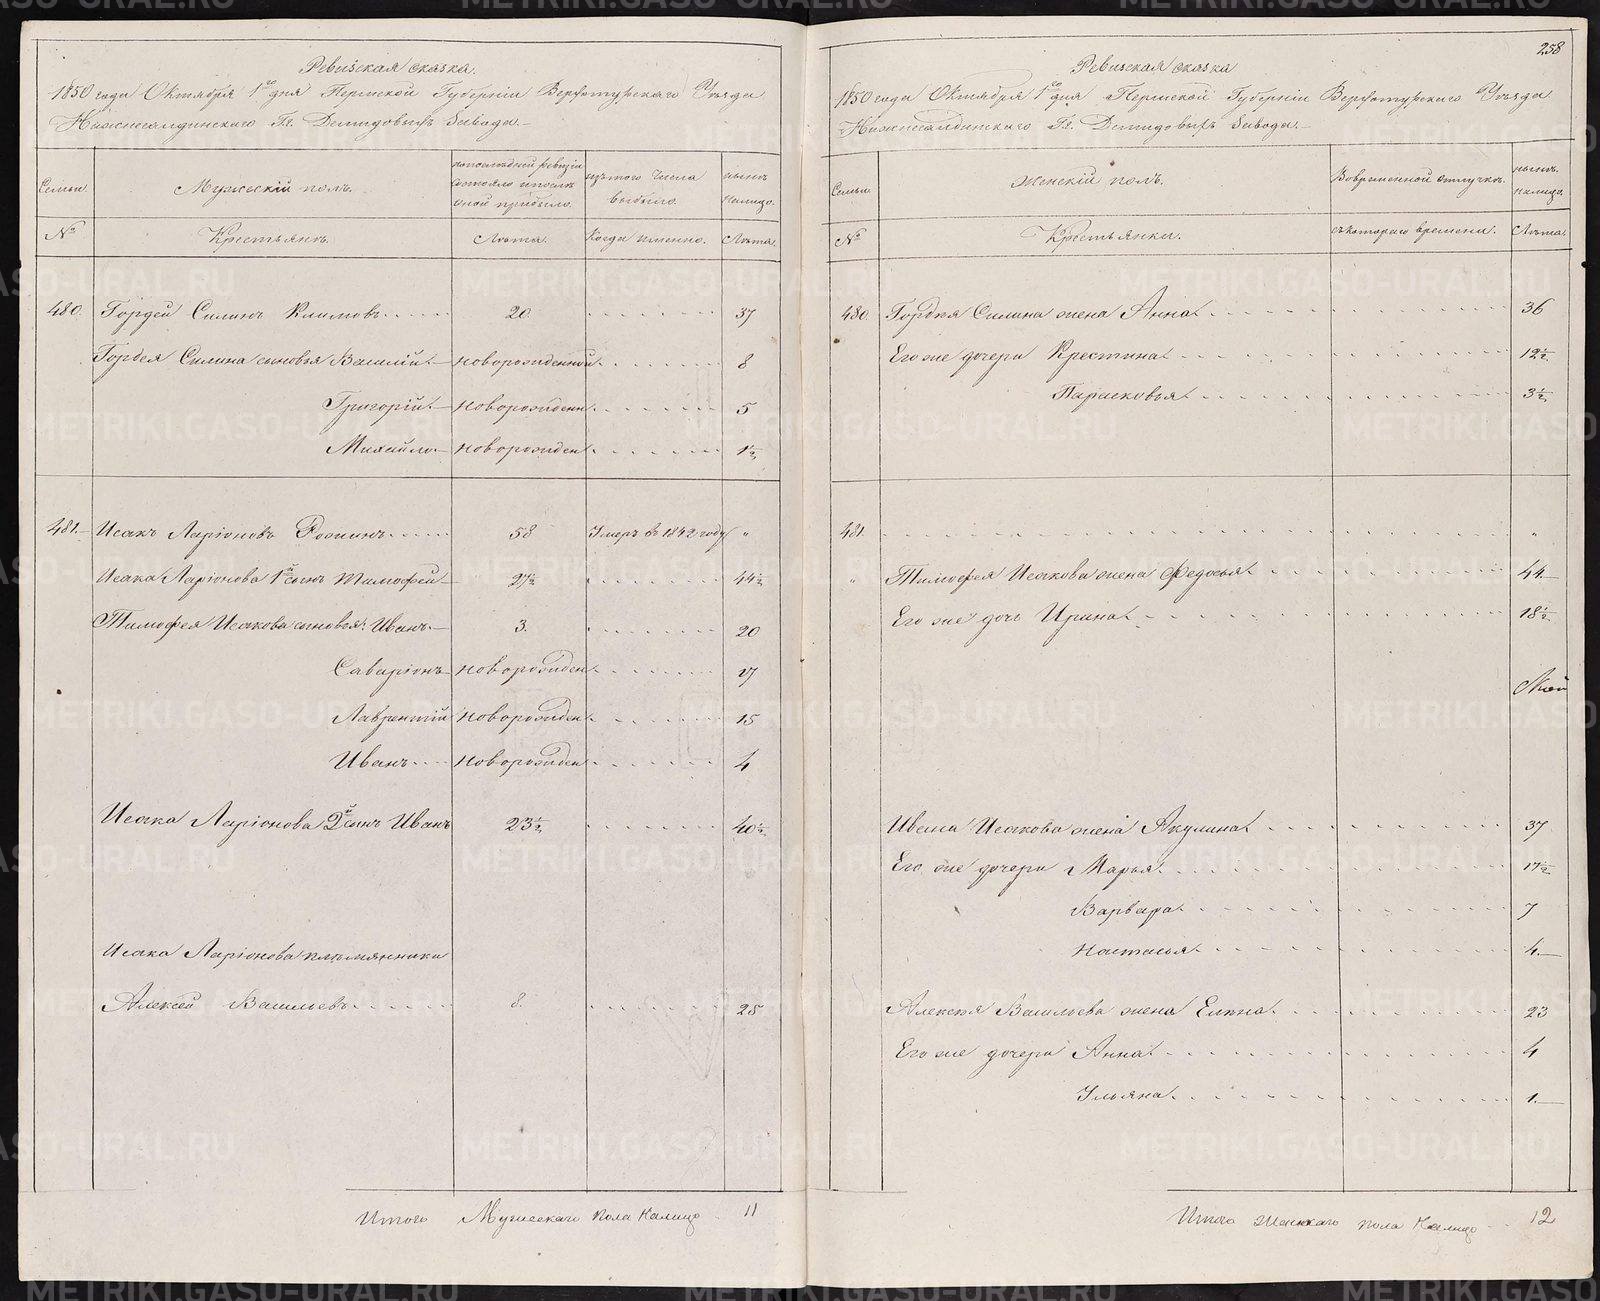 Ревизская сказка.
1850 года Октября 1го дня Пермской Губернии Верхотурскаго Уѣзда
Нижнесалдинскаго Гг. Демидовыхъ Завода.
Семьи.
Мужескій полъ.
попослѣдней ревизіи состояло и после оной прибыло.
изъ того числа выбыло.
нынѣ налицо.
№
Крестьянъ.
Лѣта.
Когда именно.
Лѣта.
480. Гордей Силинъ Климовъ 20. 37
Гордея Силина сыновья Василій новорожденной 8
Григорій новорожденн 5
Михайло новорожден 1½
481. Исакъ Ларіоновъ 58 Умеръ въ 1842 году „
Исака Ларіонова 1й сынъ Тимофей 27½ 44½
Тимофея Исакова сыновья: Иванъ 3. 20
Саваріонъ новорожден 17
Лаврентій новорожден 15
Иванъ новорожден 4
Исака Ларіонова 2й сынъ Иванъ 23½ 40½
Исака Ларіонова племянники
Алексей Васильевъ 8. 25
Итого Мужескаго пола налицо 11
258
Ревизская сказка
1850 года Октября 1го дня Пермской Губерніи Верхотурскаго Уѣзда
Нижнесалдинскаго Гг. Демидовыхъ Завода.
Семьи.
Женскій полъ.
Вовременной отлучкѣ.
нынѣ налицо.
№
Крестьянки.
съкотораго времени.
Лѣта.
480. Гордея Силина жена Анна 36
Его же дочери Крестина 12½
Парасковья 3½
481. „
„ Тимофея Исакова жена Федосья 44
Его же дочь Ирина 18½
Ивана Исакова жена Акулина 37
Его же дочери Марья 17½
Варвара 7
Настасья 4
Алексѣя Васильева жена Елена 23
Его же дочери Анна 4
Ульяна 1
Итого женскаго пола налицо 12
METRIKI.GASO-URAL.RU